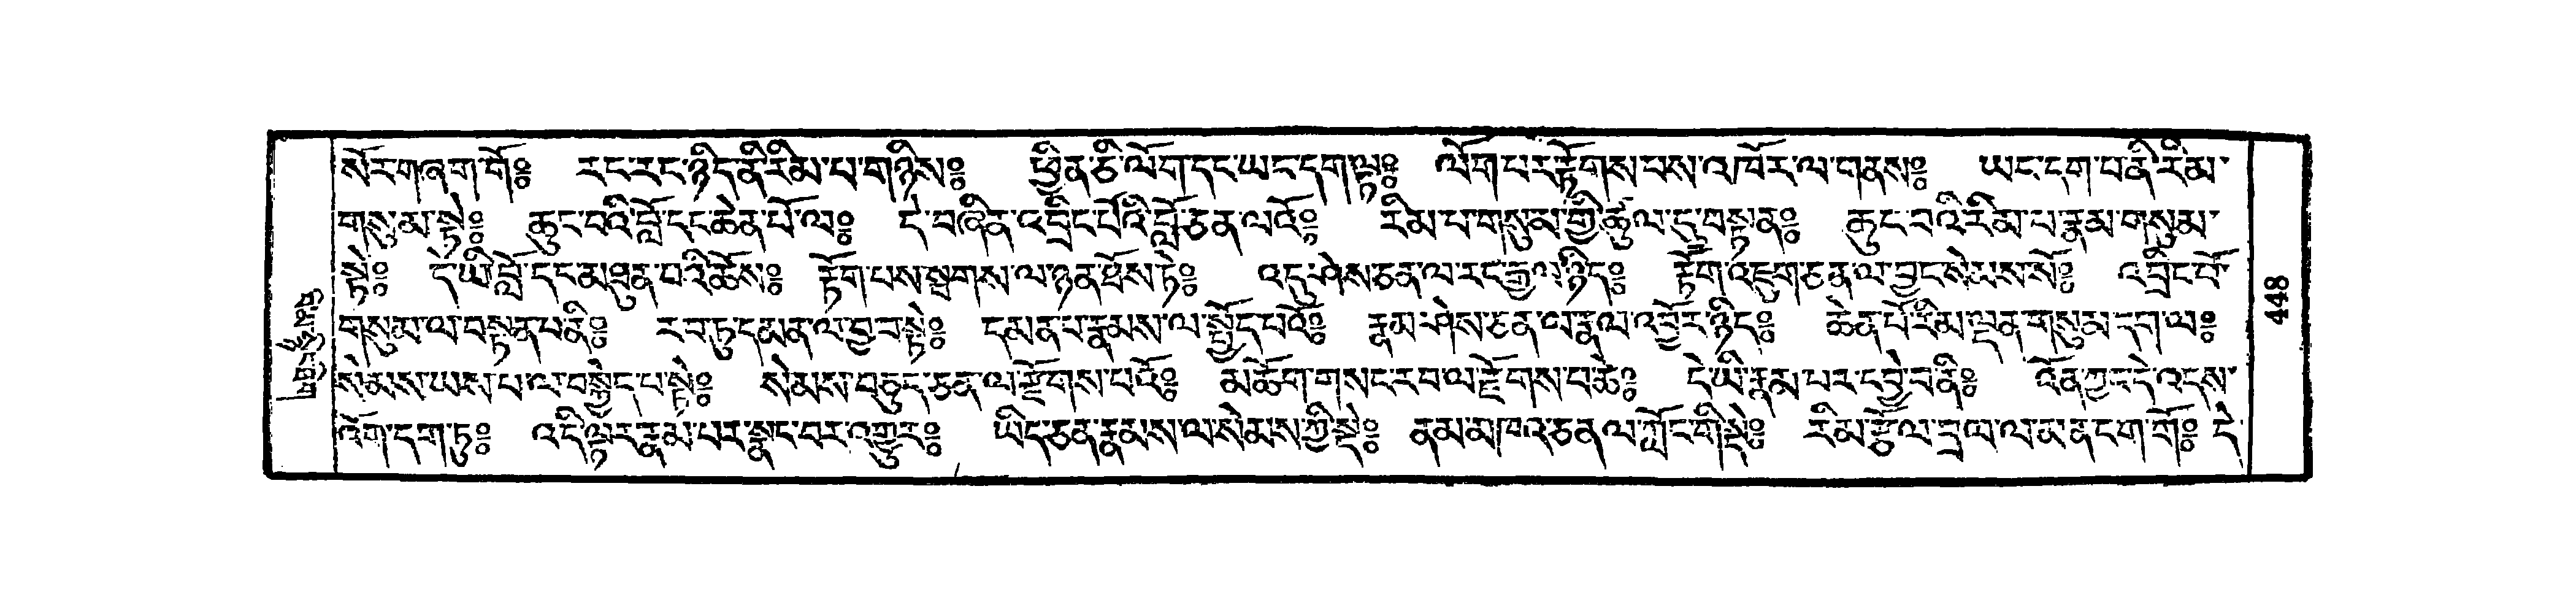 སོར་གཞག་གོ༔ རང་རང་ཉིད་ནི་རིམ་པ་གཉིས༔ ཕྱིན་ཅི་ལོག་དང་ཡང་དག་ལྟ༔ ལོག་པར་རྟོགས་པས་འཁོར་ལ་གནས༔ ཡང་དག་པ་ནི་རིམ་
གསུམ་སྟེ༔ ཆུང་བའི་བློ་དང་ཆེན་པོ་ལ༔ དེ་བཞིན་འབྲིང་པོའི་བློ་ཅན་ལའོ༔ རིམ་པ་གསུམ་གྱི་ཚུལ་དུ་བསྟན༔ ཆུང་བའི་རིམ་པ་རྣམ་གསུམ་
སྟེ༔ དེ་ཡི་བློ་དང་མཐུན་པའི་ཆོས༔ རྟོག་པས་སྦགས་ལ་ཉན་ཐོས་ཏེ༔ འདུ་ཤེས་ཅན་ལ་རང་རྒྱལ་ཉིད༔ རྟོག་འཇུག་ཅན་ལ་བྱང་སེམས་སོ༔ འབྲིང་པོ་
གསུམ་ལ་བསྟན་པ་ནི༔ རབ་ཏུ་དམན་ལ་བྱ་བ་སྟེ༔ དམན་པ་རྣམས་ལ་སྤྱོད་པའོ༔ རྣམ་ཤེས་ཅན་ལ་རྣལ་འབྱོར་ཉིད༔ ཆེན་པོ་རིམ་ལྡན་གསུམ་དག་ལ༔
སེམས་ཡས་པ་ལ་བསྐྱེད་པ་སྟེ༔ སེམས་བཅུད་ཅན་ལ་རྫོགས་པའོ༔ མཆོག་གསང་རབ་ལ་རྫོགས་པ་ཆེ༔ དེ་ཡི་རྣམ་པར་དབྱེ་བ་ནི༔ འོན་ཀྱང་དེ་འདས་
འོག་དག་ཏུ༔ འདི་ལྟར་རྣམ་པར་སྣང་བར་འགྱུར༔ ཡིད་ཅན་རྣམས་ལ་སེམས་ཀྱི་སྡེ༔ ནམ་མཁའ་ཅན་ལ་ཀློང་གི་སྡེ༔ རིམ་རྩོལ་བྲལ་ལ་མན་ངག་གོ༔ དེ་
༨༤༤